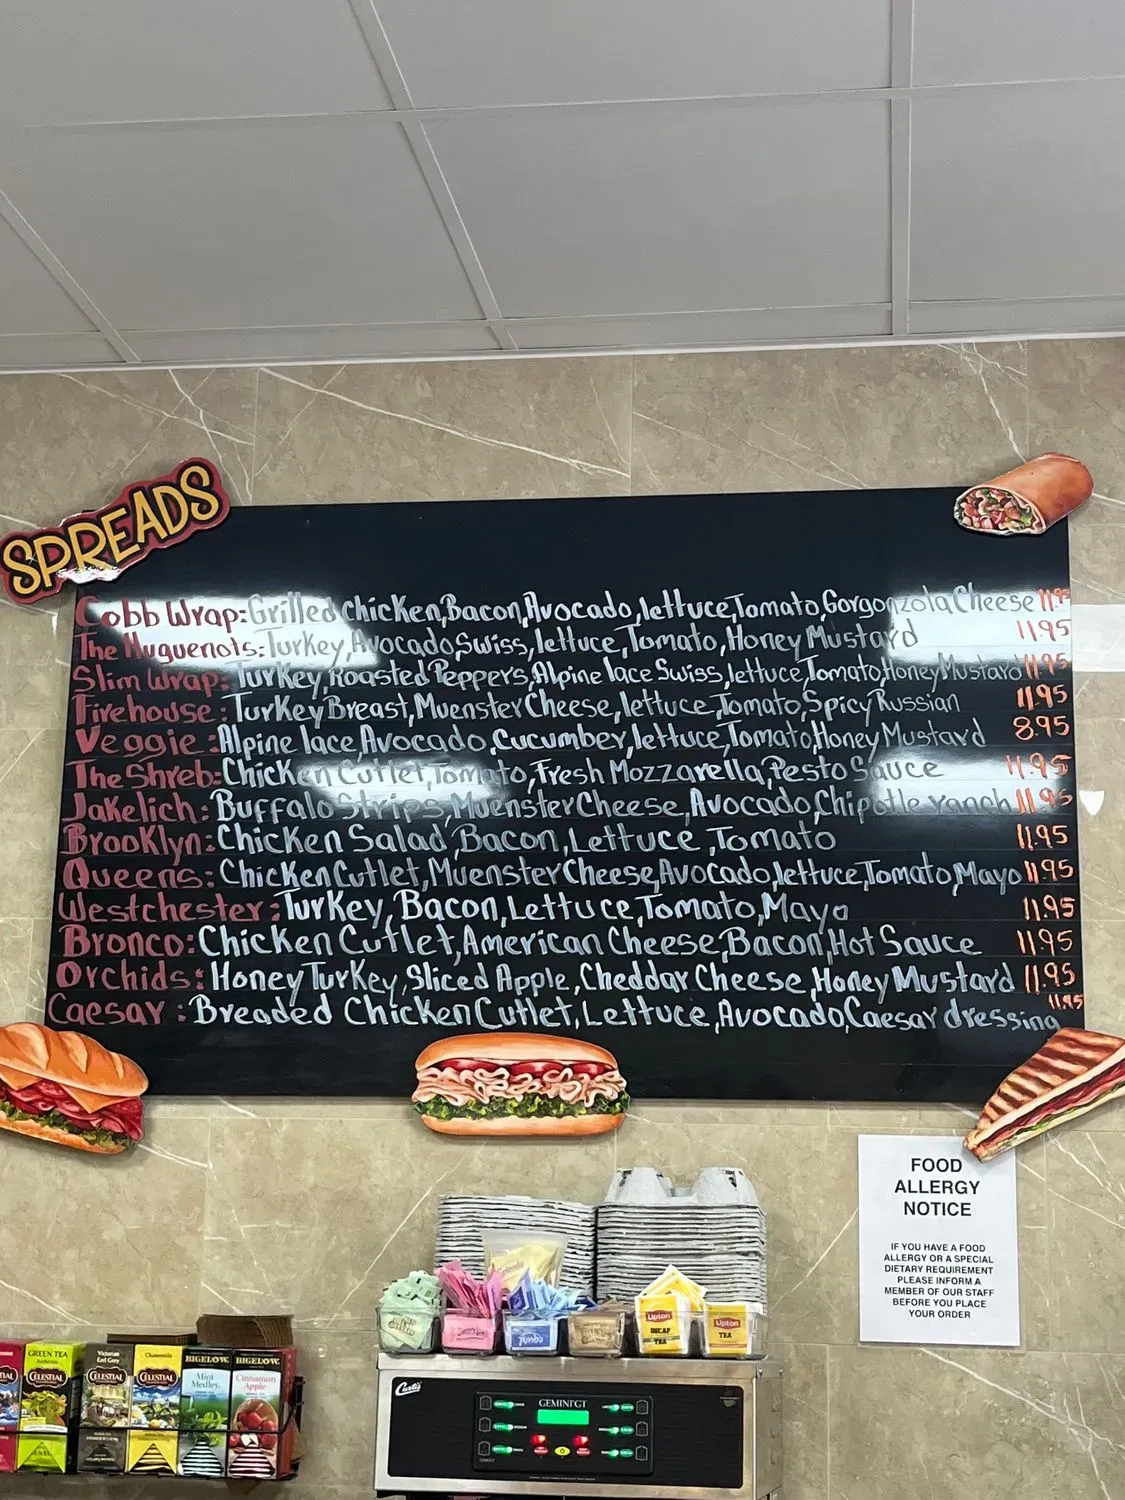 SPREADS
Cobb Wrap: Grilled chicken, Bacon, Avocado, lettuce, Tomato, Gorgonzola Cheese 11.95
The Huguenots: Turkey, Avocado, Swiss, lettuce, Tomato, Honey Mustard 11.95
Slim Wrap: Turkey, Roasted Peppers, Alpine lace Swiss, lettuce, Tomato, Honey Mustard 11.95
Firehouse: Turkey Breast, Muenster Cheese, lettuce, Tomato, Spicy Russian 11.95
Veggie: Alpine lace, Avocado, Cucumber, lettuce, Tomato, Honey Mustard 8.95
The Shreb: Chicken Cutlet, Tomato, Fresh Mozzarella, Pesto Sauce 11.95
Jakelich: Buffalo Strips, Muenster Cheese, Avocado, Chipotle ranch 11.95
Brooklyn: Chicken Salad, Bacon, Lettuce, Tomato 11.95
Queens: Chicken Cutlet, Muenster Cheese, Avocado, lettuce, Tomato, Mayo 11.95
Westchester: Turkey, Bacon, Lettuce, Tomato, Mayo 11.95
Bronco: Chicken Cutlet, American Cheese, Bacon, Hot Sauce 11.95
Orchids: Honey Turkey, Sliced Apple, Cheddar Cheese, Honey Mustard 11.95
Caesar: Breaded Chicken Cutlet, Lettuce, Avocado, Caesar dressing 11.95
FOOD
ALLERGY
NOTICE
IF YOU HAVE A FOOD
ALLERGY OR A SPECIAL
DIETARY REQUIREMENT
PLEASE INFORM A
MEMBER OF OUR STAFF
BEFORE YOU PLACE
YOUR ORDER
Lipton
DECAF
TEA
Lipton
TEA
equal
GREEN TEA
CELESTIAL
Victorian
Earl Grey
CELESTIAL
Chamomile
CELESTIAL
BIGELOW
Mint
Medley
BIGELOW
Cinnamon
Apple
Curtis
GEMINI GT